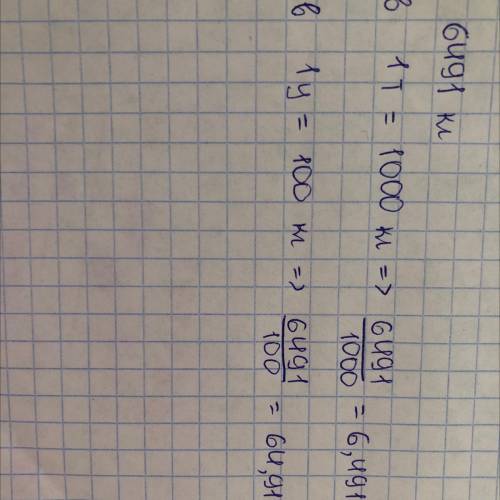 6491 кг
в 1 т = 1000 кг => 6491/1000 = 6,491
в 1 ц = 100 кг => 6491/100 = 64,91